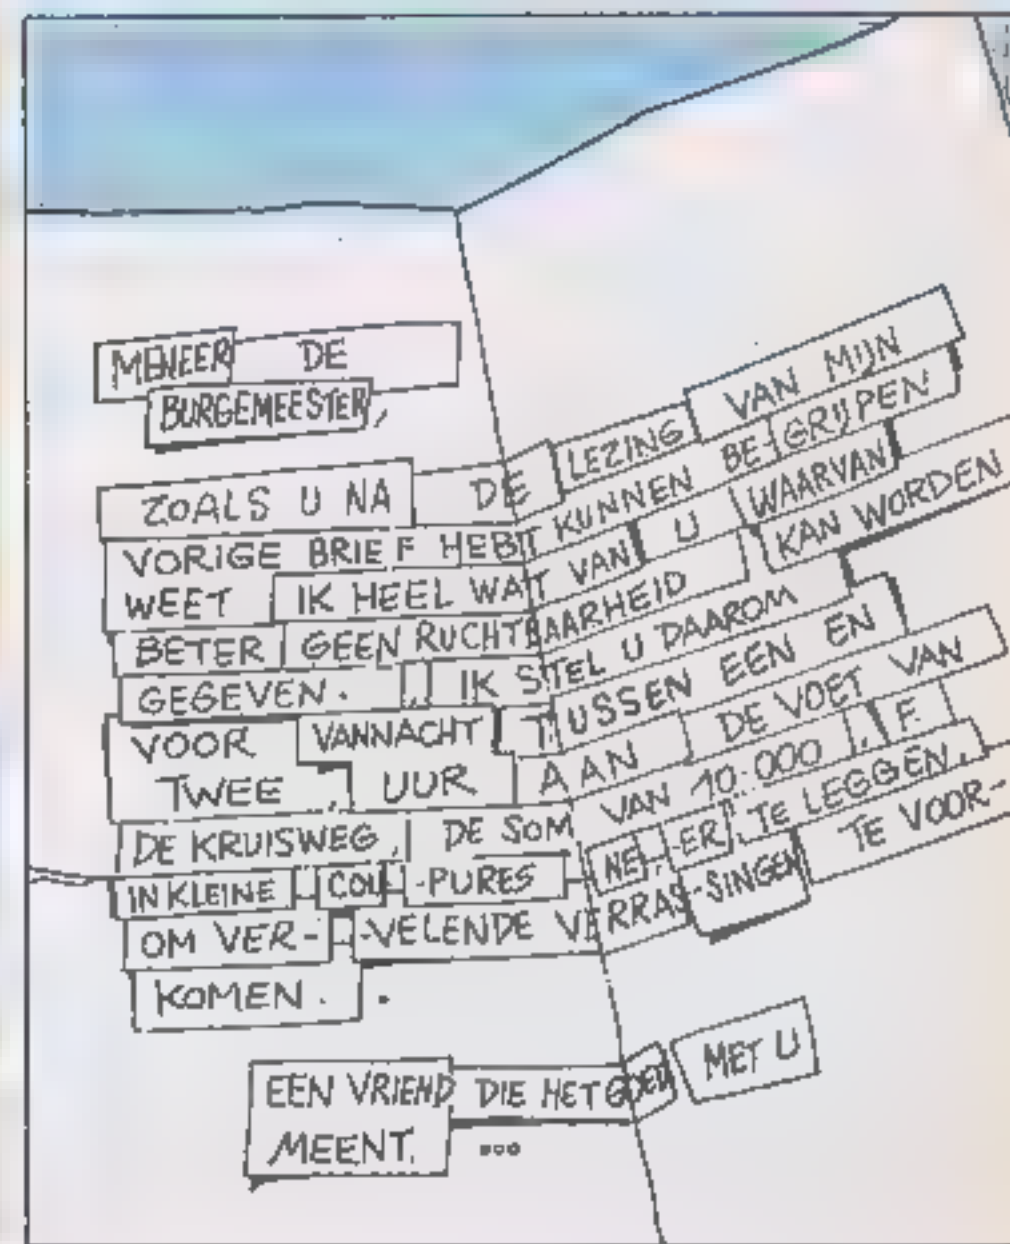 MENEER DE
BURGEMEESTER,
ZOALS U NA DE LEZING VAN MIJN
VORIGE BRIEF HEBT KUNNEN BE-GRIJPEN
WEET IK HEEL WAT VAN U WAARVAN
BETER GEEN RUCHTBAARHEID KAN WORDEN
GEGEVEN. IK STEL U DAAROM
VOOR VANNACHT TUSSEN EEN EN
TWEE UUR AAN DE VOET VAN
DE KRUISWEG, DE SOM VAN 10.000, F.
IN KLEINE COU-PURES NE-ER TE LEGGEN,
OM VER--VELENDE VERRAS-SINGEN TE VOOR-
KOMEN..
EEN VRIEND DIE HET GOED MET U
MEENT. ...